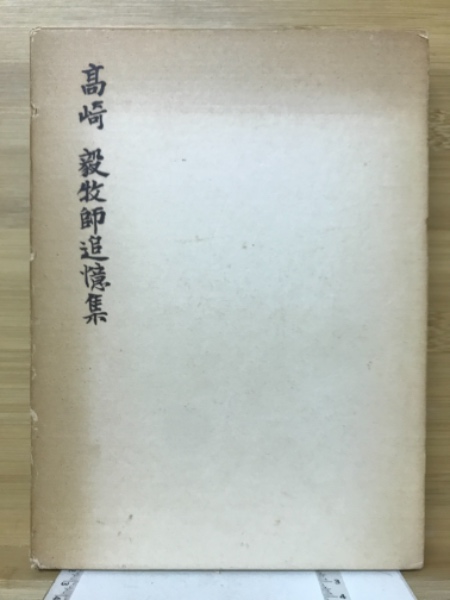 髙崎 毅牧師追憶集